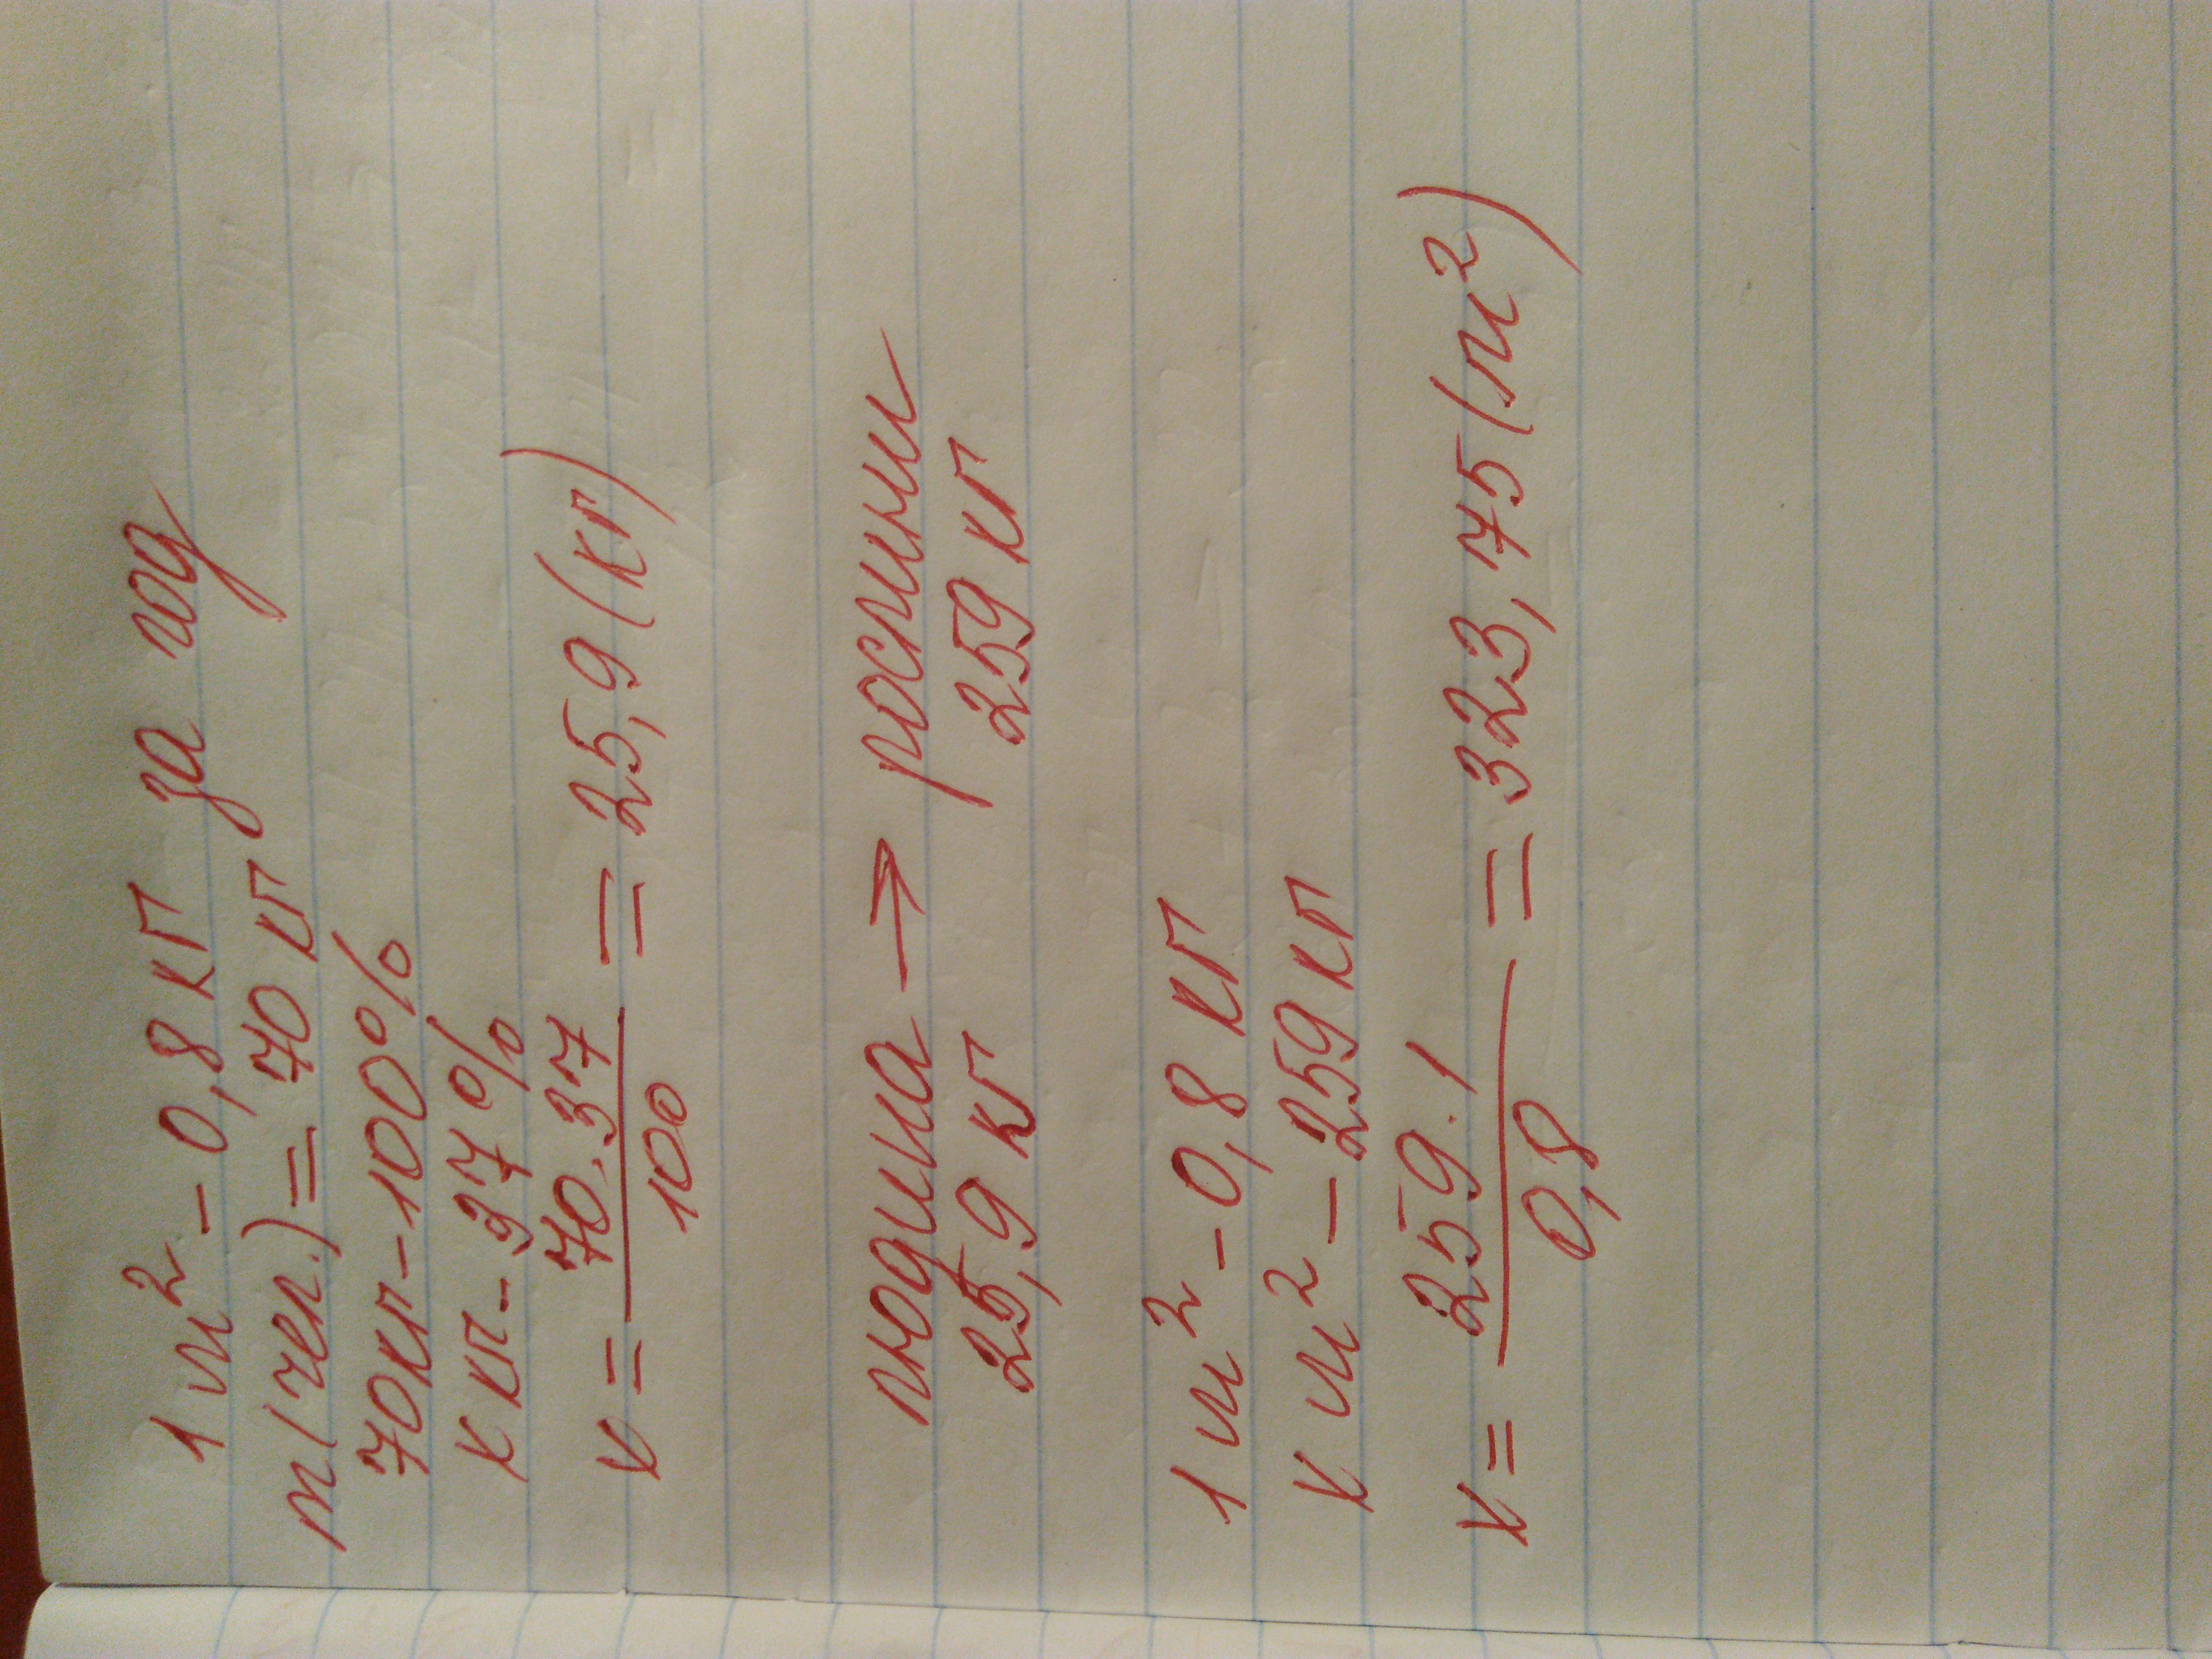 1 м² - 0,8 кг за год
m(чел.) = 70 кг
70кг-100%
х кг-37%
х = 70.37/100 = 25,9(кг)
людина → рослини
25,9 кг 259 кг
1 м² - 0,8 кг
х м² - 259 кг
х = 259.1/0,8 = 323,75(м²)